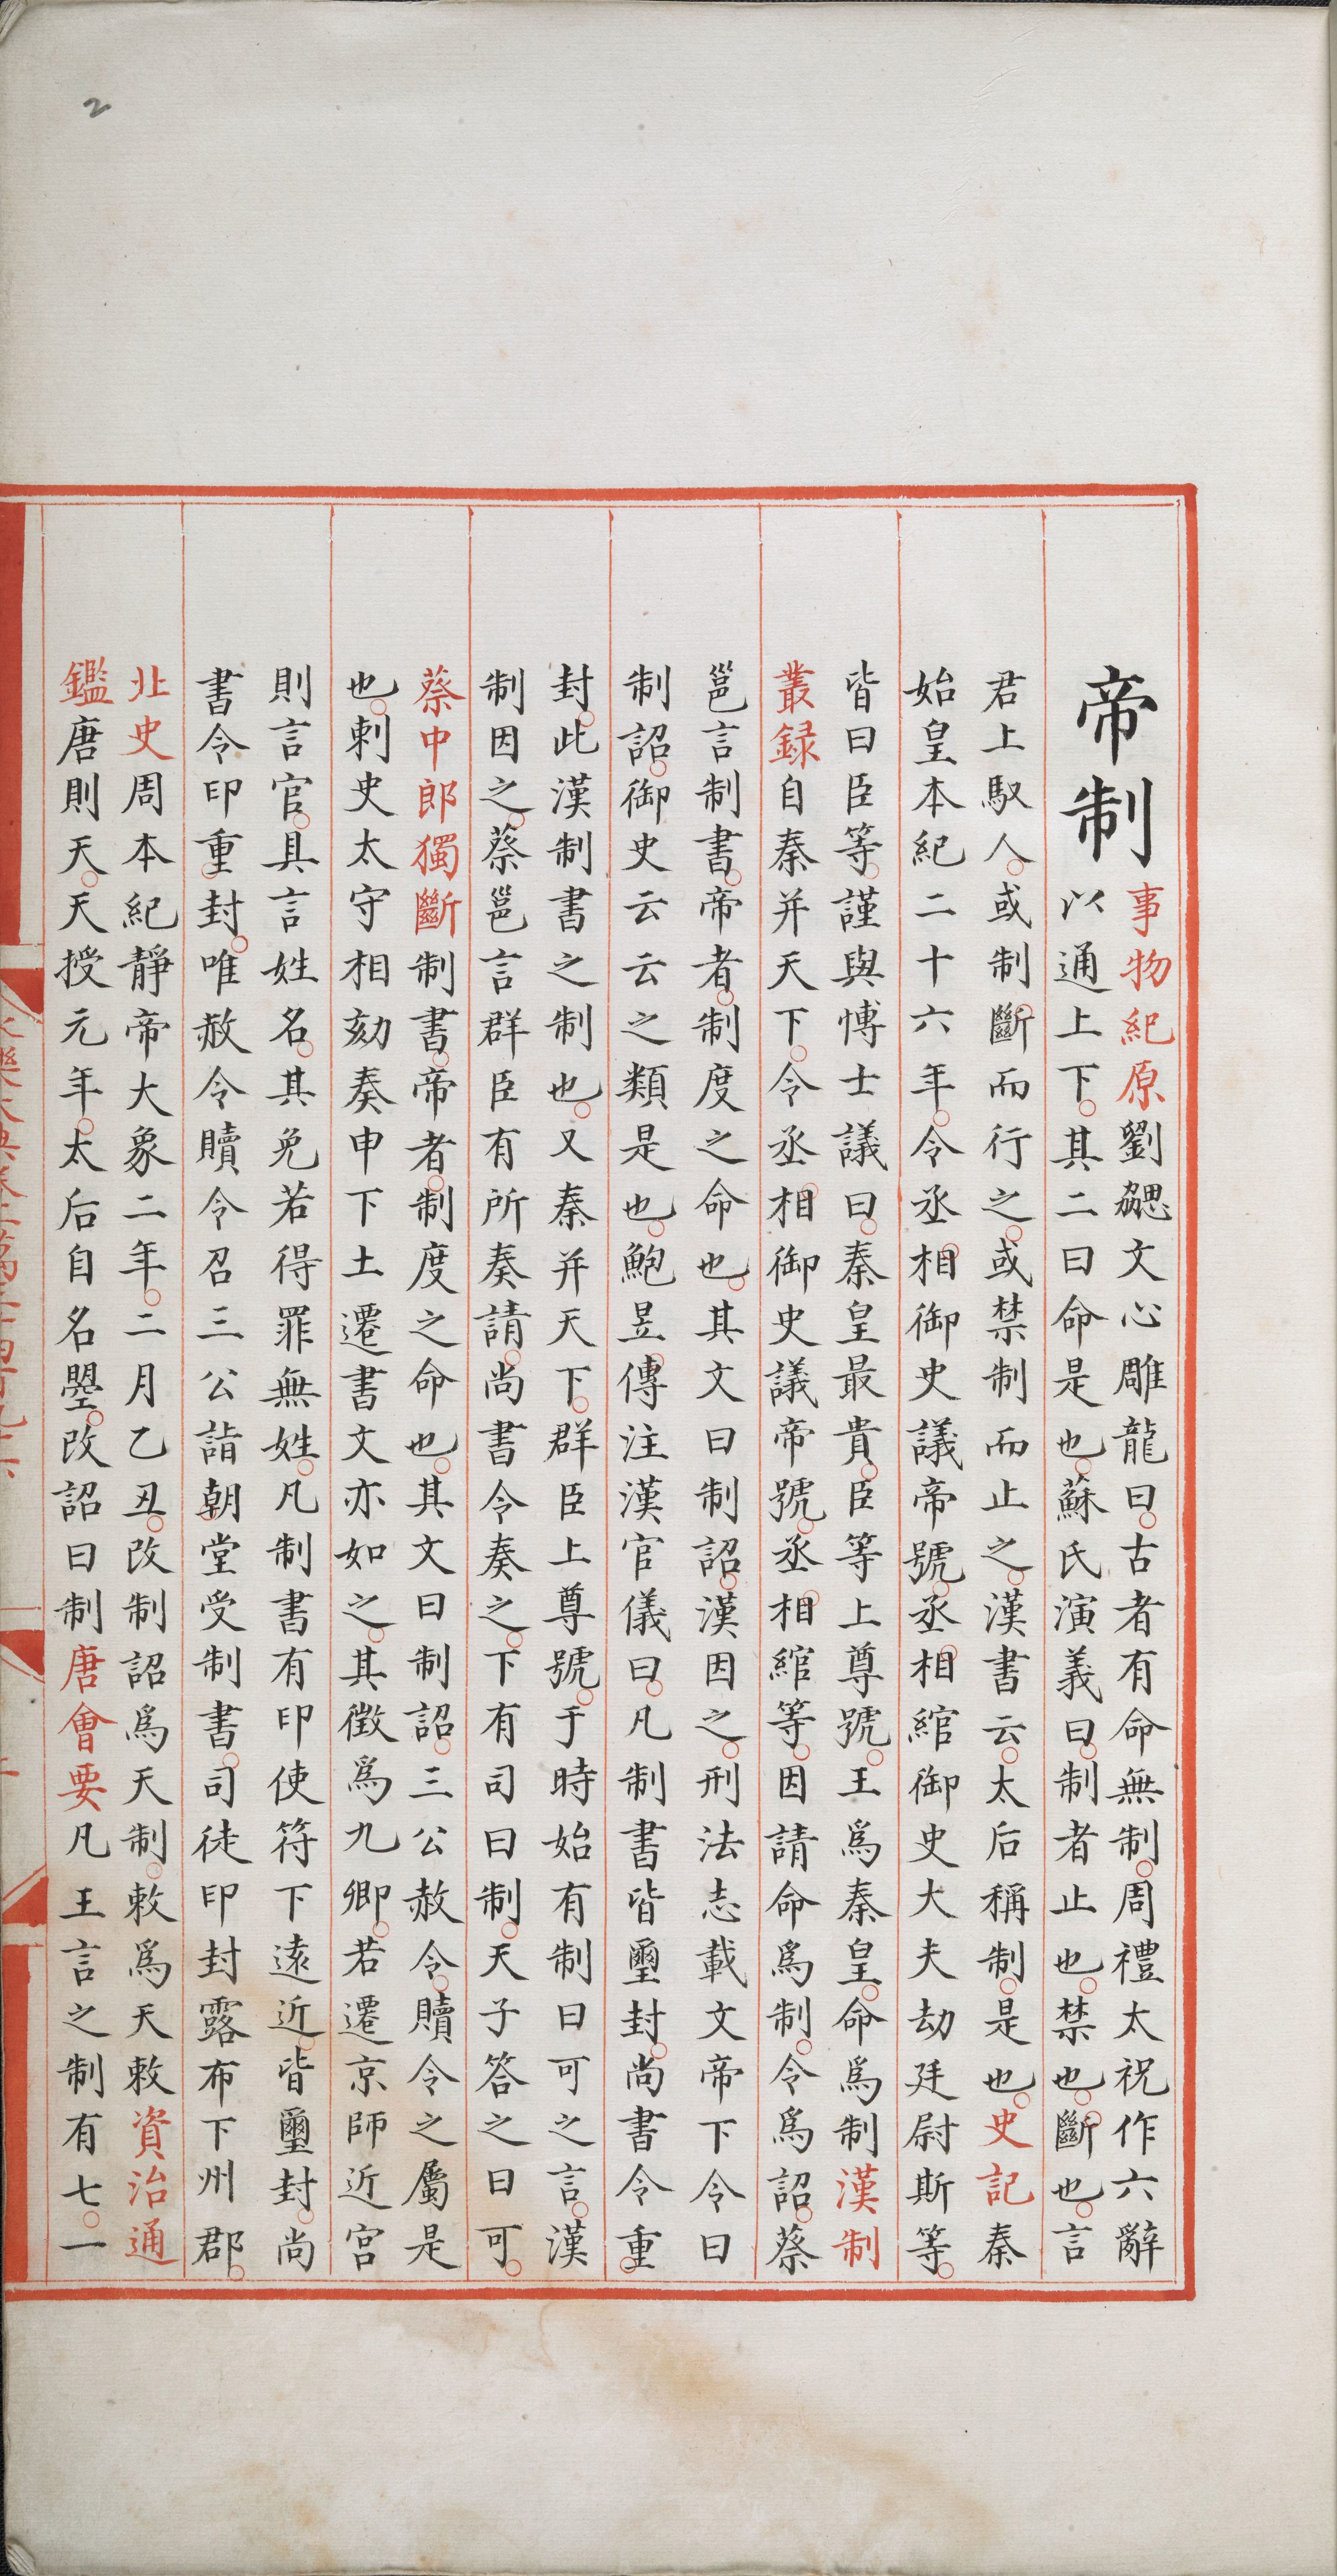 2
帝制
事物紀原劉勰文心雕龍曰古者有命無制周禮太祝作六辭
以通上下其二曰命是也蘇氏演義曰制者止也禁也斷也言
君上馭人或制斷而行之或禁制而止之漢書云太后稱制是也史記秦
始皇本紀二十六年令丞相御史議帝號丞相綰御史大夫劫廷尉斯等
皆曰臣等謹與博士議曰秦皇最貴臣等上尊號王爲秦皇命爲制漢制
叢録自秦并天下令丞相御史議帝號丞相綰等因請命爲制令爲詔蔡
邕言制書帝者制度之命也其文曰制詔漢因之刑法志載文帝下令曰
制詔御史云云之類是也鮑昱傳注漢官儀曰凡制書皆璽封尚書令重
封此漢制書之制也又秦并天下群臣上尊號于時始有制曰可之言漢
制因之蔡邕言群臣有所奏請尚書令奏之下有司曰制天子答之曰可
蔡中郎獨斷制書帝者制度之命也其文曰制詔三公赦令贖令之屬是
也刺史太守相劾奏申下土遷書文亦如之其徵爲九卿若遷京師近宫
則言官具言姓名其免若得罪無姓凡制書有印使符下逺近皆璽封尚
書令印重封唯赦令贖令召三公詣朝堂受制書司徒印封露布下州郡
北史周本紀靜帝大象二年二月乙丑改制詔爲天制敕爲天敕資治通
鑑唐則天天授元年太后自名曌改詔曰制唐會要凡王言之制有七一
永樂大典卷二萬二千四百九十六